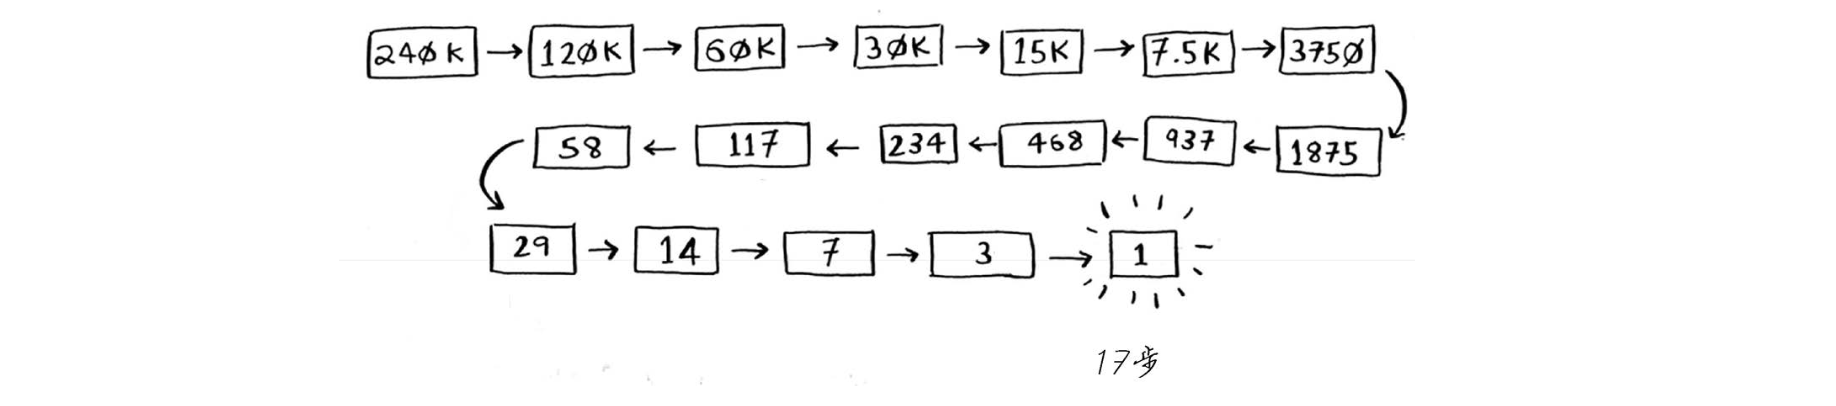 240K → 120K → 60K → 30K → 15K → 7.5K → 3750
58 ← 117 ← 234 ← 468 ← 937 ← 1875
29 → 14 → 7 → 3 → 1
17步